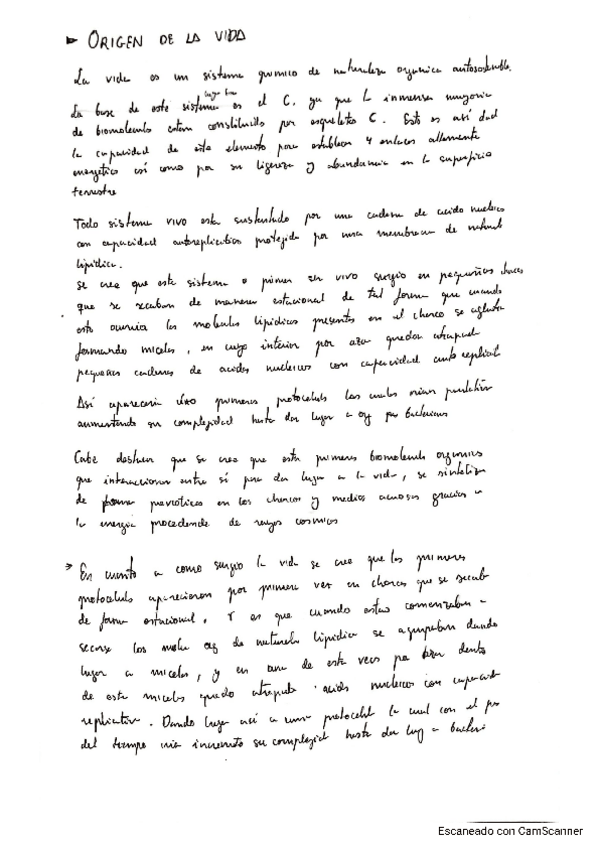 ► ORIGEN DE LA VIDA
La vida es un sistema químico de naturaleza orgánica autosostenible.
La base de este sistema es el C, ya que la inmensa mayoría
de biomoleculas estan constituidas por esqueletos C. Esto es así dad
la capacidad de este elemento para establecer 4 enlaces altamente
energéticos así como por su ligereza y abundancia en la superficie
terrestre
Todo sistema vivo esta sustentado por una cadena de acido nucleico
con capacidad autoreplicativa protegida por una membrana de natural
lipídica.
Se cree que este sistema o primer ser vivo surgio en pequeños charcos
que se secaban de manera estacional de tal forma que cuando
esto ocurria las moleculas lipidicas presentes en el charco se
formando micelas, en cuyo interior por azar quedan
pequeñas cadenas de acidos nucleicos con capacidad
Así aparecería primeros protocelulas las cuales
aumentando su complejidad hasta dar lugar a bacterias
Cabe destacar que se cree que esta primeras biomoleculas organicas
que interaccionan entre sí para dar lugar a la vida, se
de forma en los charcos y medios acuosos gracias a
la energia procedende de rayos cosmicos
→ En cuanto a como surgio la vida se cree que las primeras
protocelulas aparecieron por primera vez en charcos que se secaba
de forma estacional. Y es que cuando estos comenzaban a
secarse las org de naturaleza lipidica se agrupaban dando
lugar a micelas, y en una de esta veces por azar dentro
de esta micelas quedo atrapada acidos nucleicos con capacidad
replicativa. Dando lugar así a una protocelula la cual con el
del tiempo su complejidad hasta dar lug a bacteri
Escaneado con CamScanner